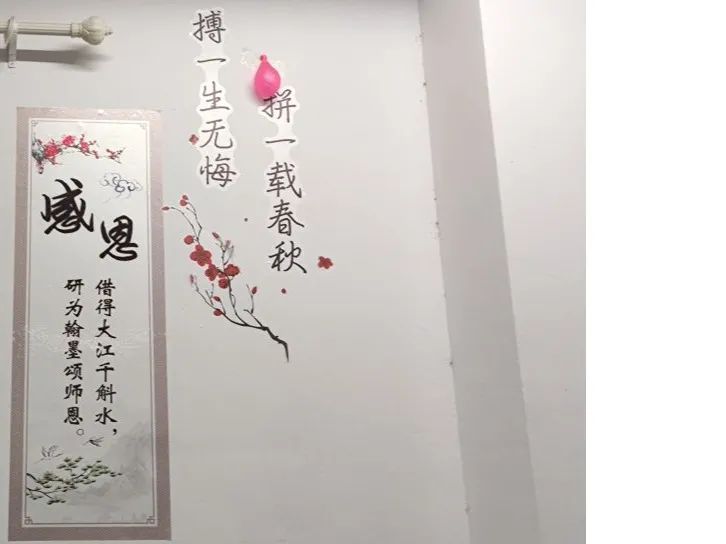 感恩
借得大江千斛水，
研为翰墨颂师恩。
拼一载春秋
搏一生无悔